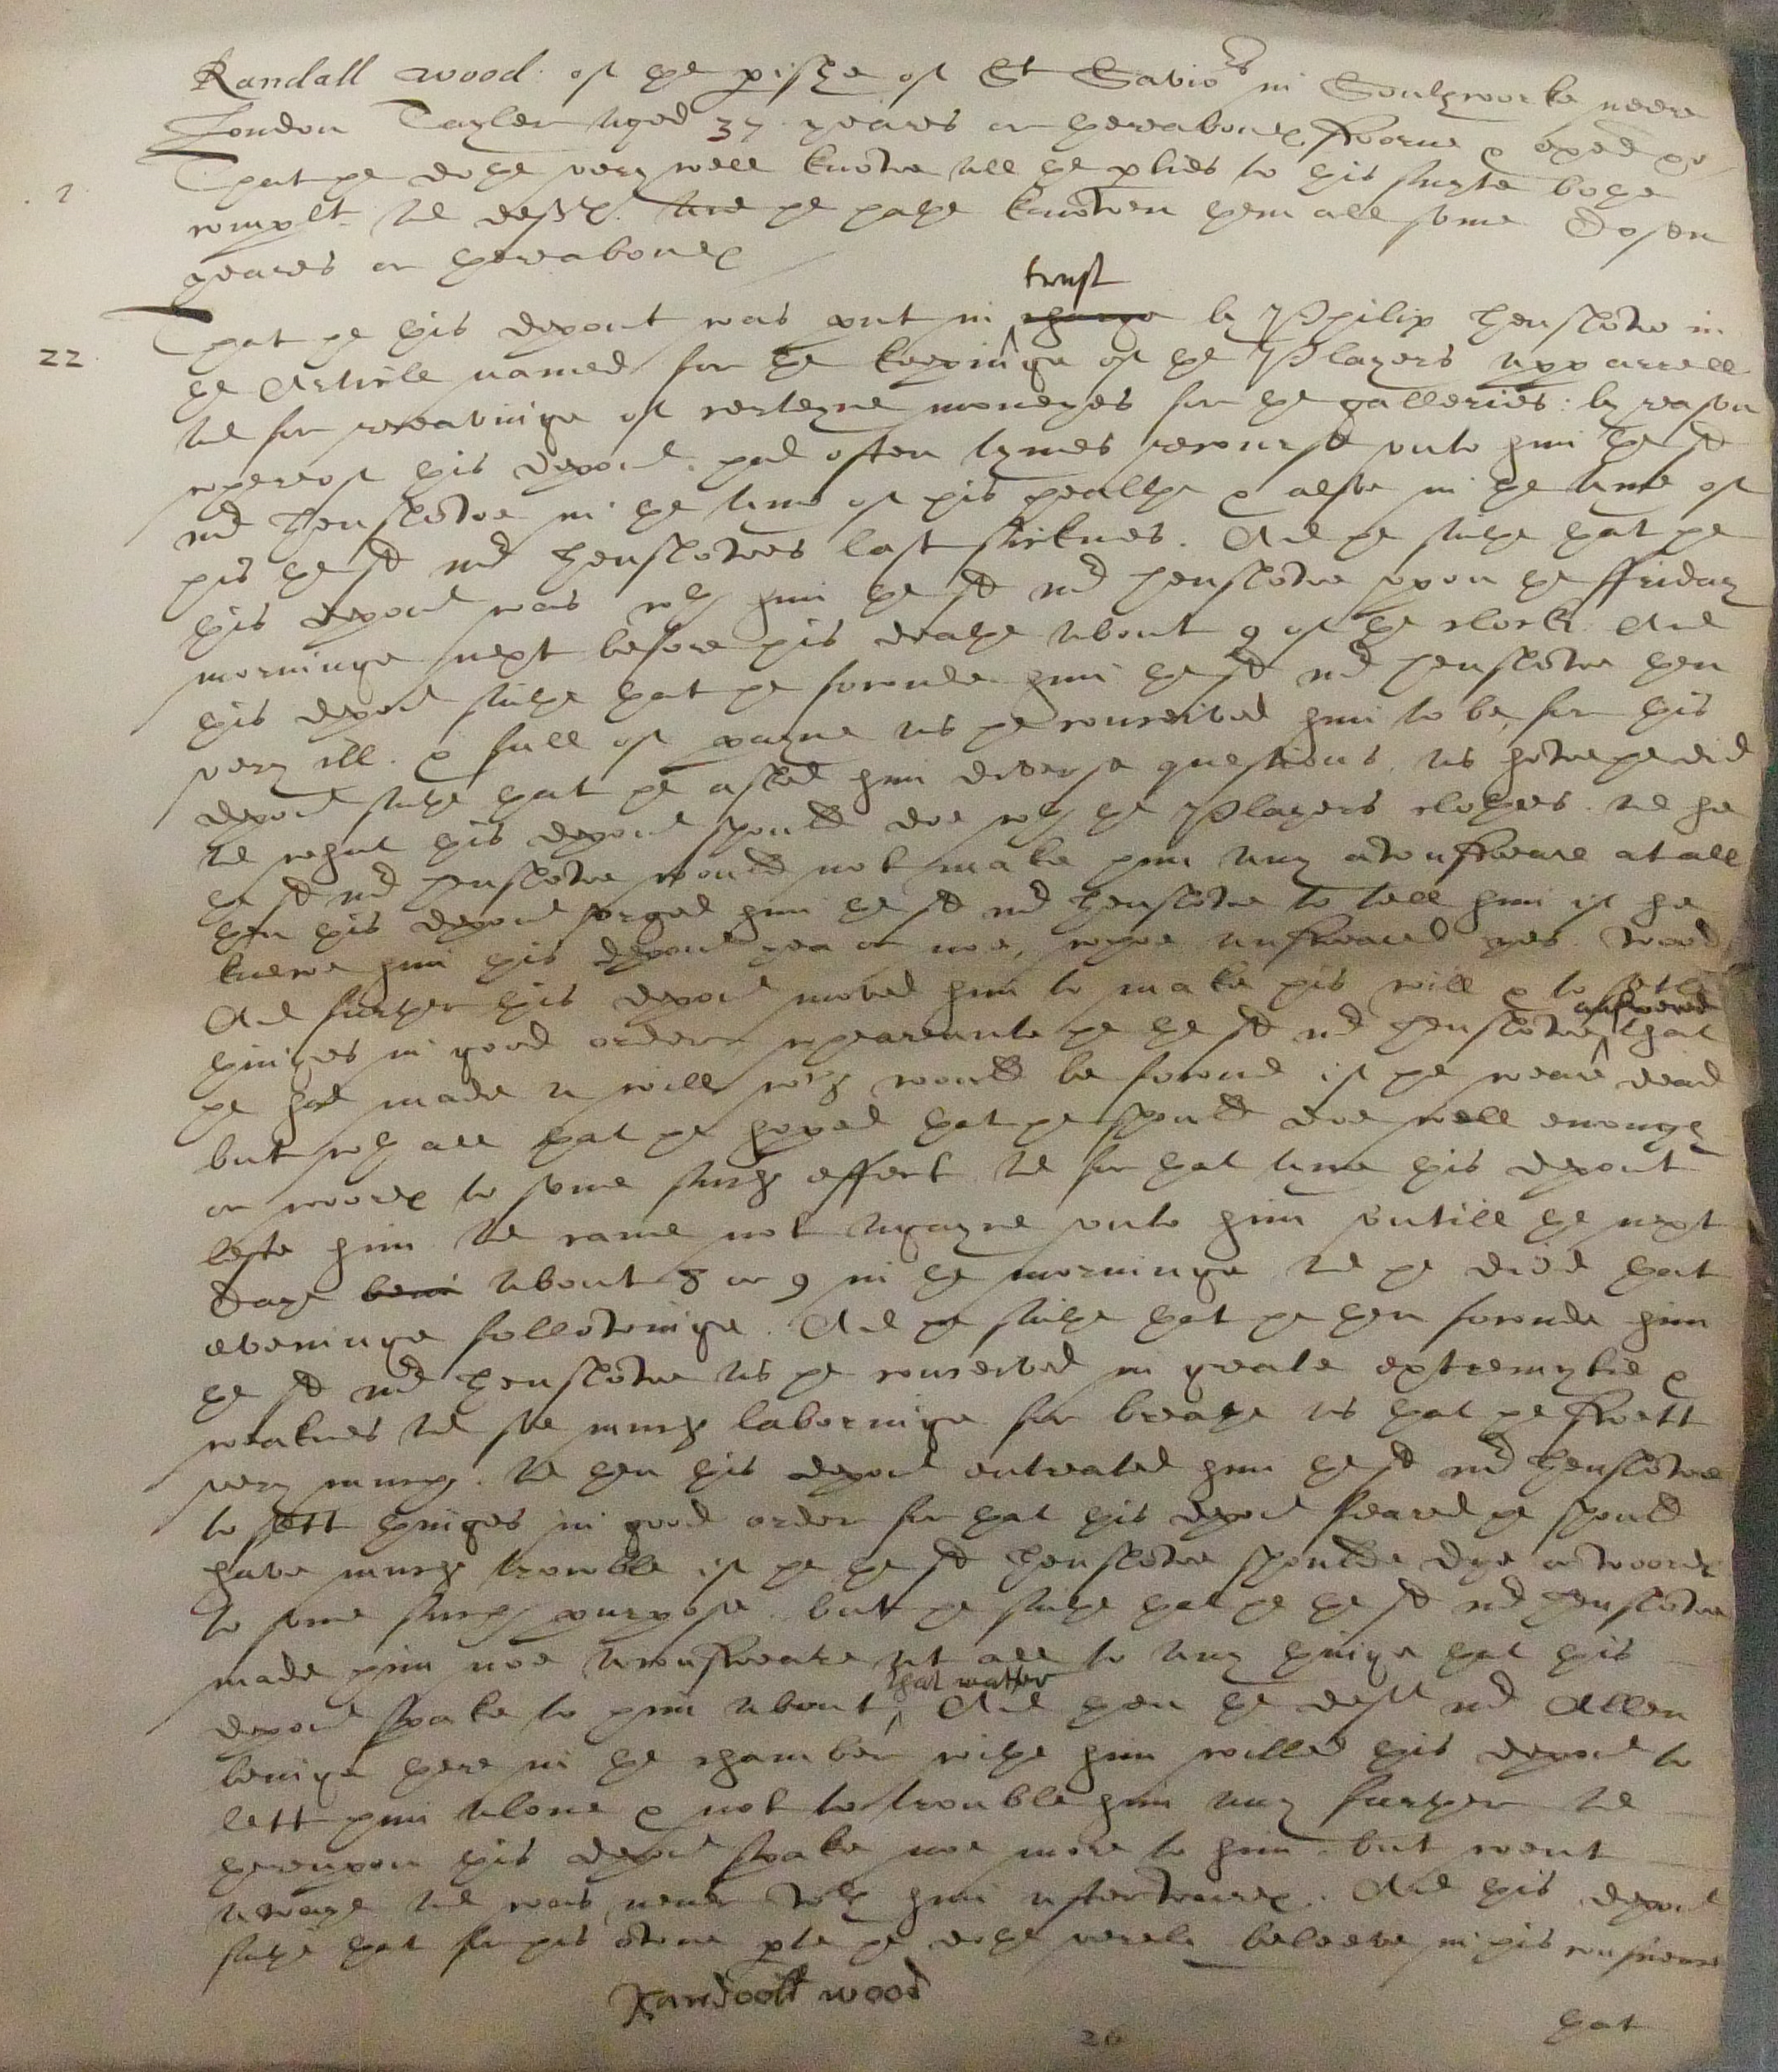 Randall wood of the pishe of St Savio:rs in Southworke neere
London Tayler aged 37 yeares or thereabout℮ sworne & exed &c
1 That he dothe very well knowe all the pties to this suyte bothe
complt and deft℮. And he hathe knowen them all some dosen
yeares or thereabout℮
22 That he this depont was put in trust charge by Phillip Henslowe in
the Article named for the keepinge of the Players apparrell
and for receavinge of certeyne moneyes for the galleries: by reason
whereof this depont had often tymes recourse unto him the sd
mr Henslowe in the time of his healthe & alsoe in the time of
his the sd mr Henslowes last sicknes. And he saithe that he
this depont was wth him the sd mr Henslowe upon the ffriday
morninge next before his deathe about 9 of the clock And
this depont saithe that he founde him the sd mr Henslowe then
very ill. & full of payne as he conceived him to be, for this
depont saithe that he asked him diverse questions, as howe he did
and what this depont should doe wth the Players clothes. and he
the sd mr Henslowe would not make him any aunsweare at all
then this depont urged him the sd mr Henslowe to tell him if he
knewe him this depont yea or noe, whoe answeared yes. wood
And further this depont moved him to make his will & to sett
thinges in good order wheareunto he the sd mr Henslowe answered that
he had made a will wch would be found if he weare dead
but wth all that he hoped that he should doe well enough
or word℮ to some such effect. and for that time this depont
lefte him and came not agayne unto him untill the next
daye about 8 or 9 in the morninge and he died that
eveninge followinge. And he saithe that he then founde him
the sd mr Henslowe as he conceived in greate extremytie &
weaknes and soe much laboringe for breathe as that he swett
very much. and then this depont entreated him the sd mr Henslowe
to sett thinges in good order for that this depont feared he should
have much trouble if he the sd Henslowe shoulde dye or word℮
to some such purpose. but he saithe that he the sd mr Henslowe
made him noe aunsweare at all to any thinge that this
depont spake to him about that matter And then the deft mr Allen
beinge there in the chamber withe him willed this depont to
lett him alone & not to trouble him any further and
thereupon this depont spake noe more to him but went
awaye and was never wth him afterward℮. And this depont
saithe that for his owne pte he dothe verely beleeve in his conscience
Randoll wood
26
that